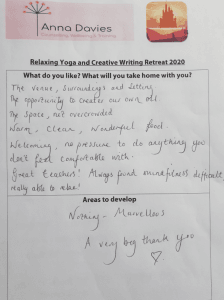 Anna Davies
Relaxing Yoga and Creative Writing Retreat 2020
What do you like? What will you take home with you?
The venue, surroundings and setting
The opportunity to create our own oil.
The space, not overcrowded
Warm, clean, wonderful food.
Welcoming, no pressure to do anything you
don't feel comfortable with.
Great teachers! Always found mindfulness difficult,
really able to relax!
Areas to develop
Nothing - Marvellous
A very big thank you